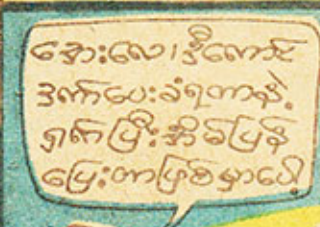 အေားလေ၊ ဒီကောင်
ဒဏ်ပေးခံရတာနဲ့
ရှက်ပြီး အိမ်ပြန်
ပြေးတာဖြစ်မှာပေါ့